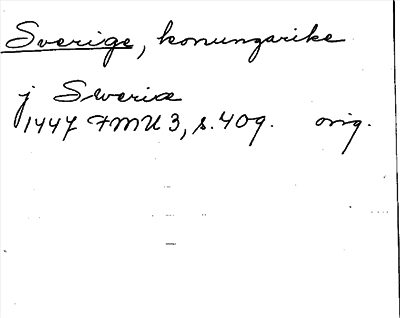 Sverige, konungarike
j Sweria
1447 FMU 3, s. 409. orig.